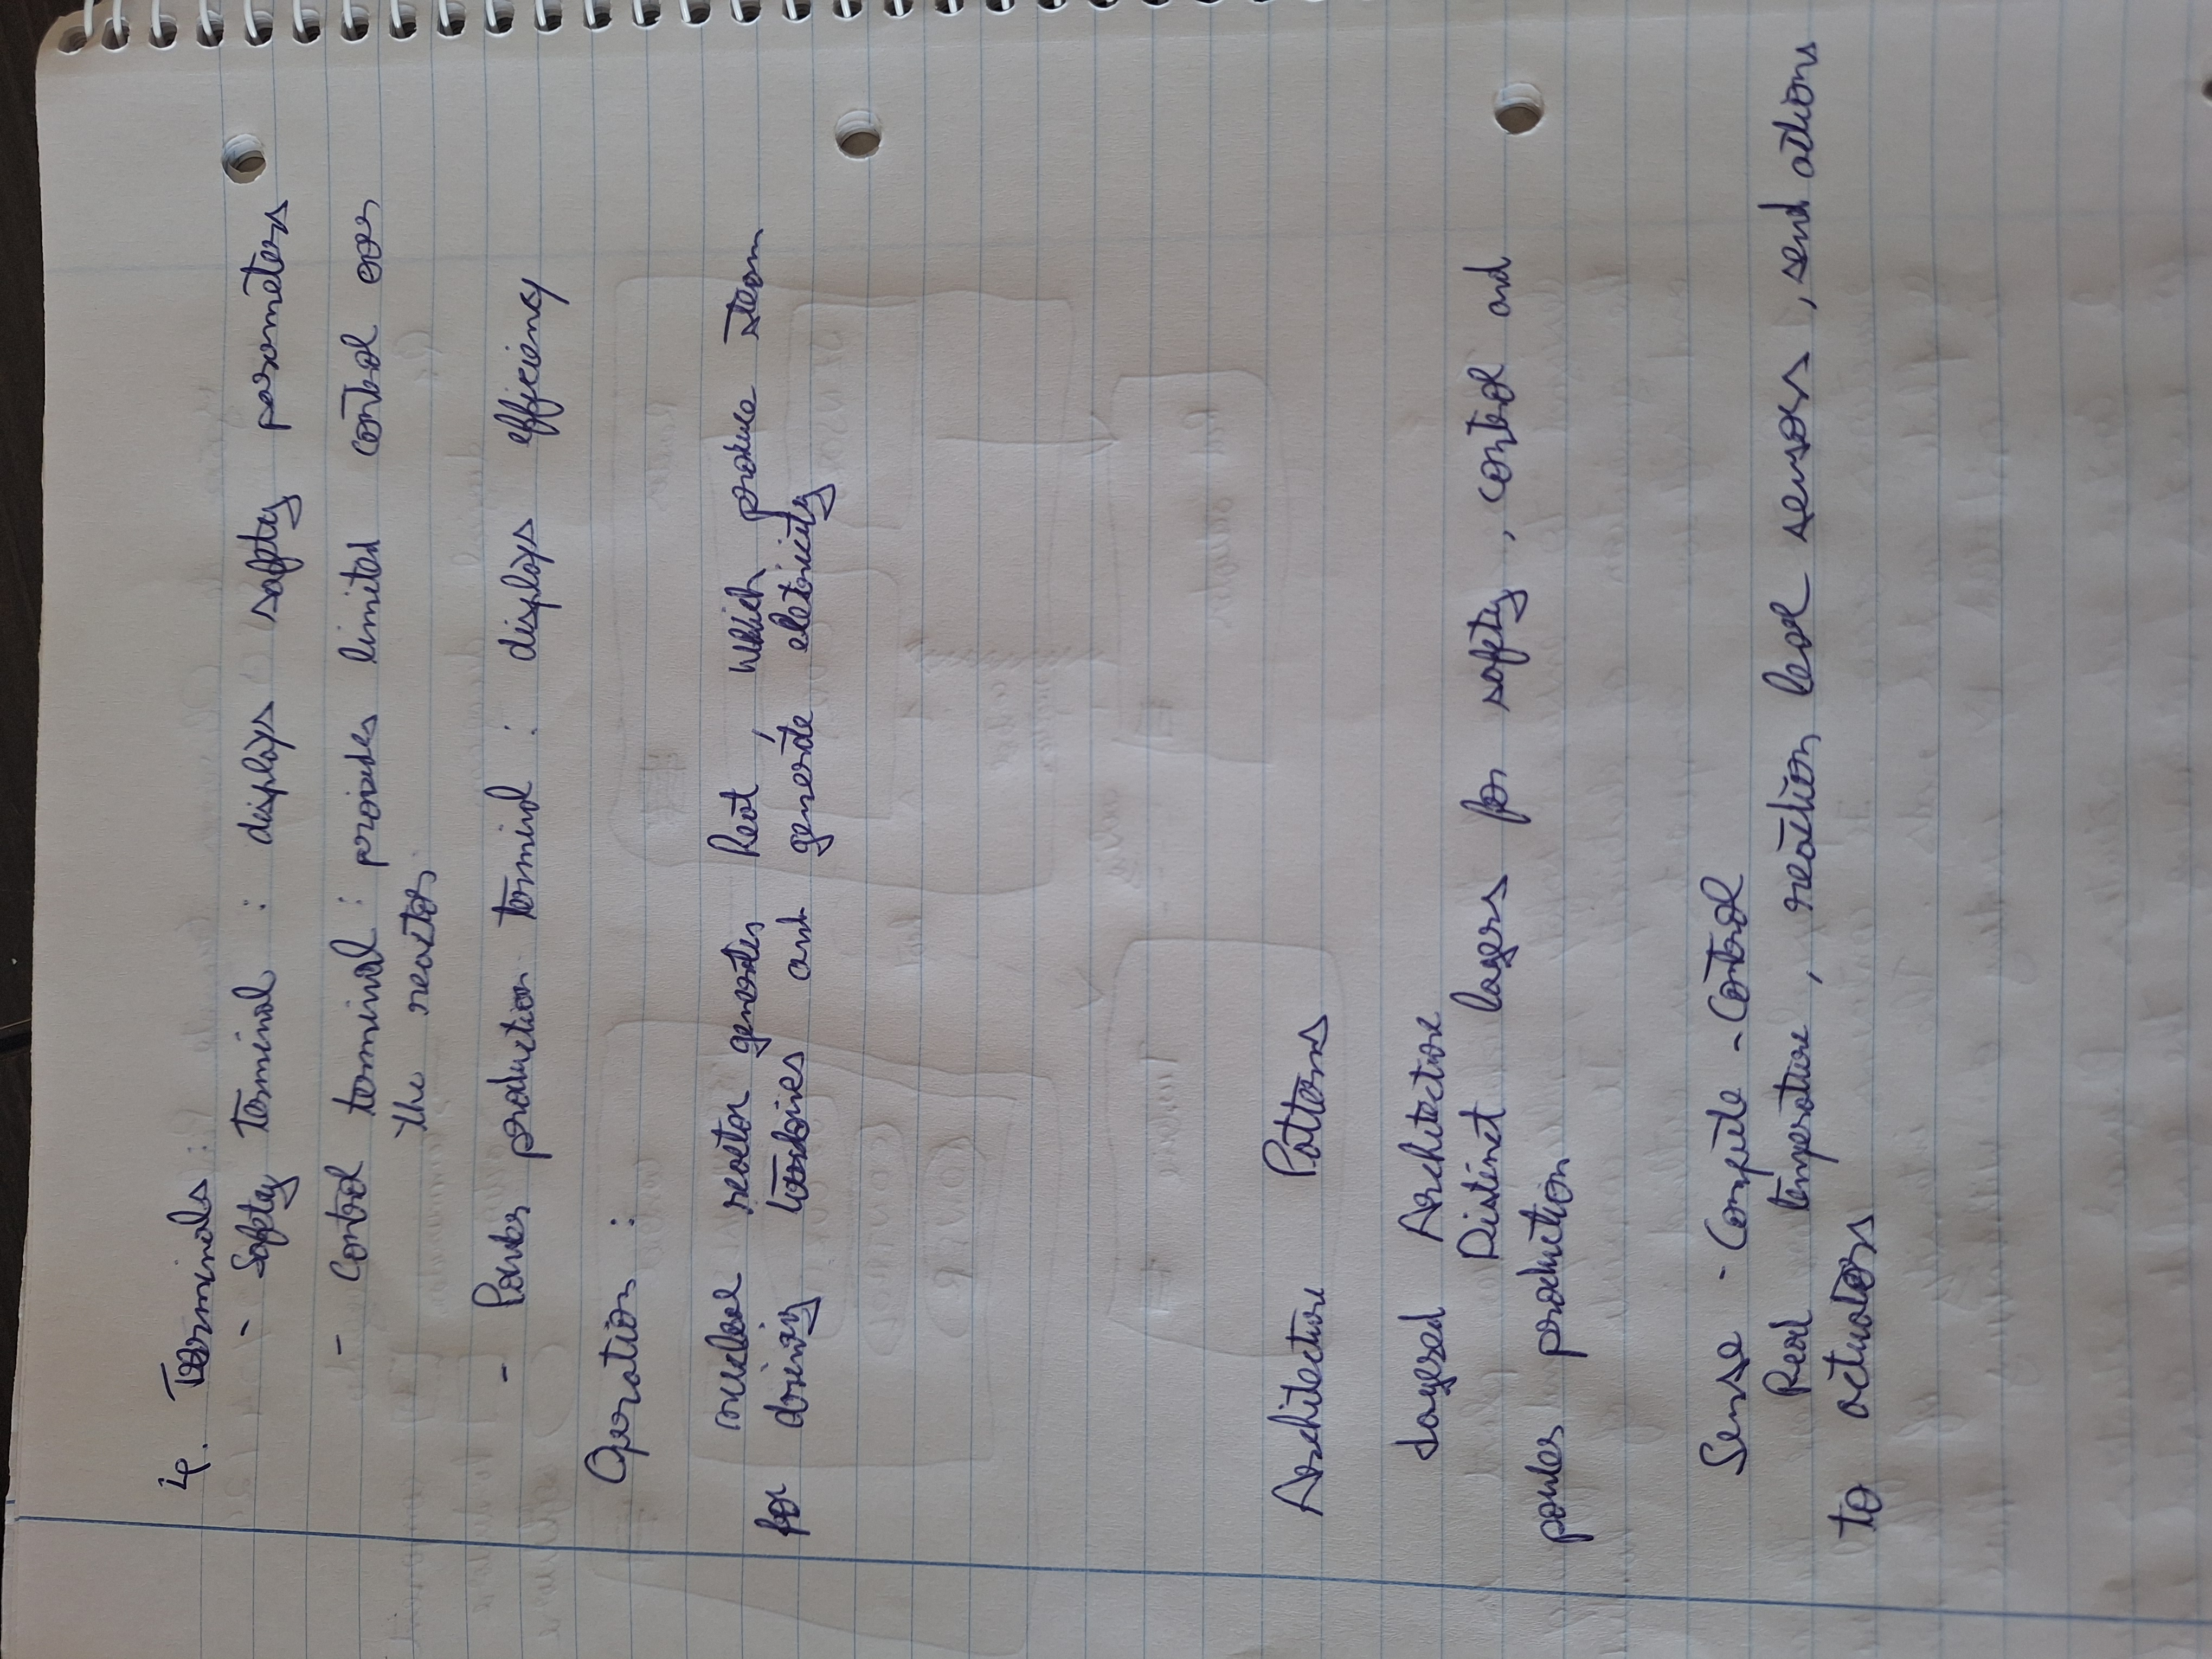 4. Terminals:
- Safety terminal : displays safety parameters
- Control terminal : provides limited control over
the reactor.
- Power production terminal : displays efficiency
Operation :
nuclear reactor generates heat, which produce steam
for driving turbines and generate eletricity
Architecture Patterns
Layered Architecture
Distinct layers for safety, control and
power production
Sense - Compute - Control
Read temperature, reaction level sensors, send actions
to actuators